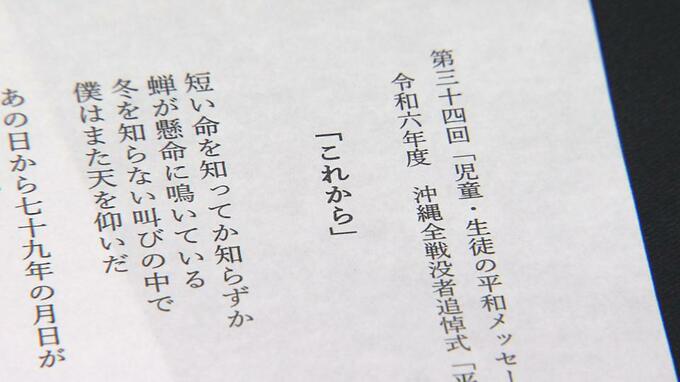 第三十四回「児童・生徒の平和メッセー
令和六年度 沖縄全戦没者追悼式「平
「これから」
短い命を知ってか知らずか
蝉が懸命に鳴いている
冬を知らない叫びの中で
僕はまた天を仰いだ
あの日から七十九年の月日が